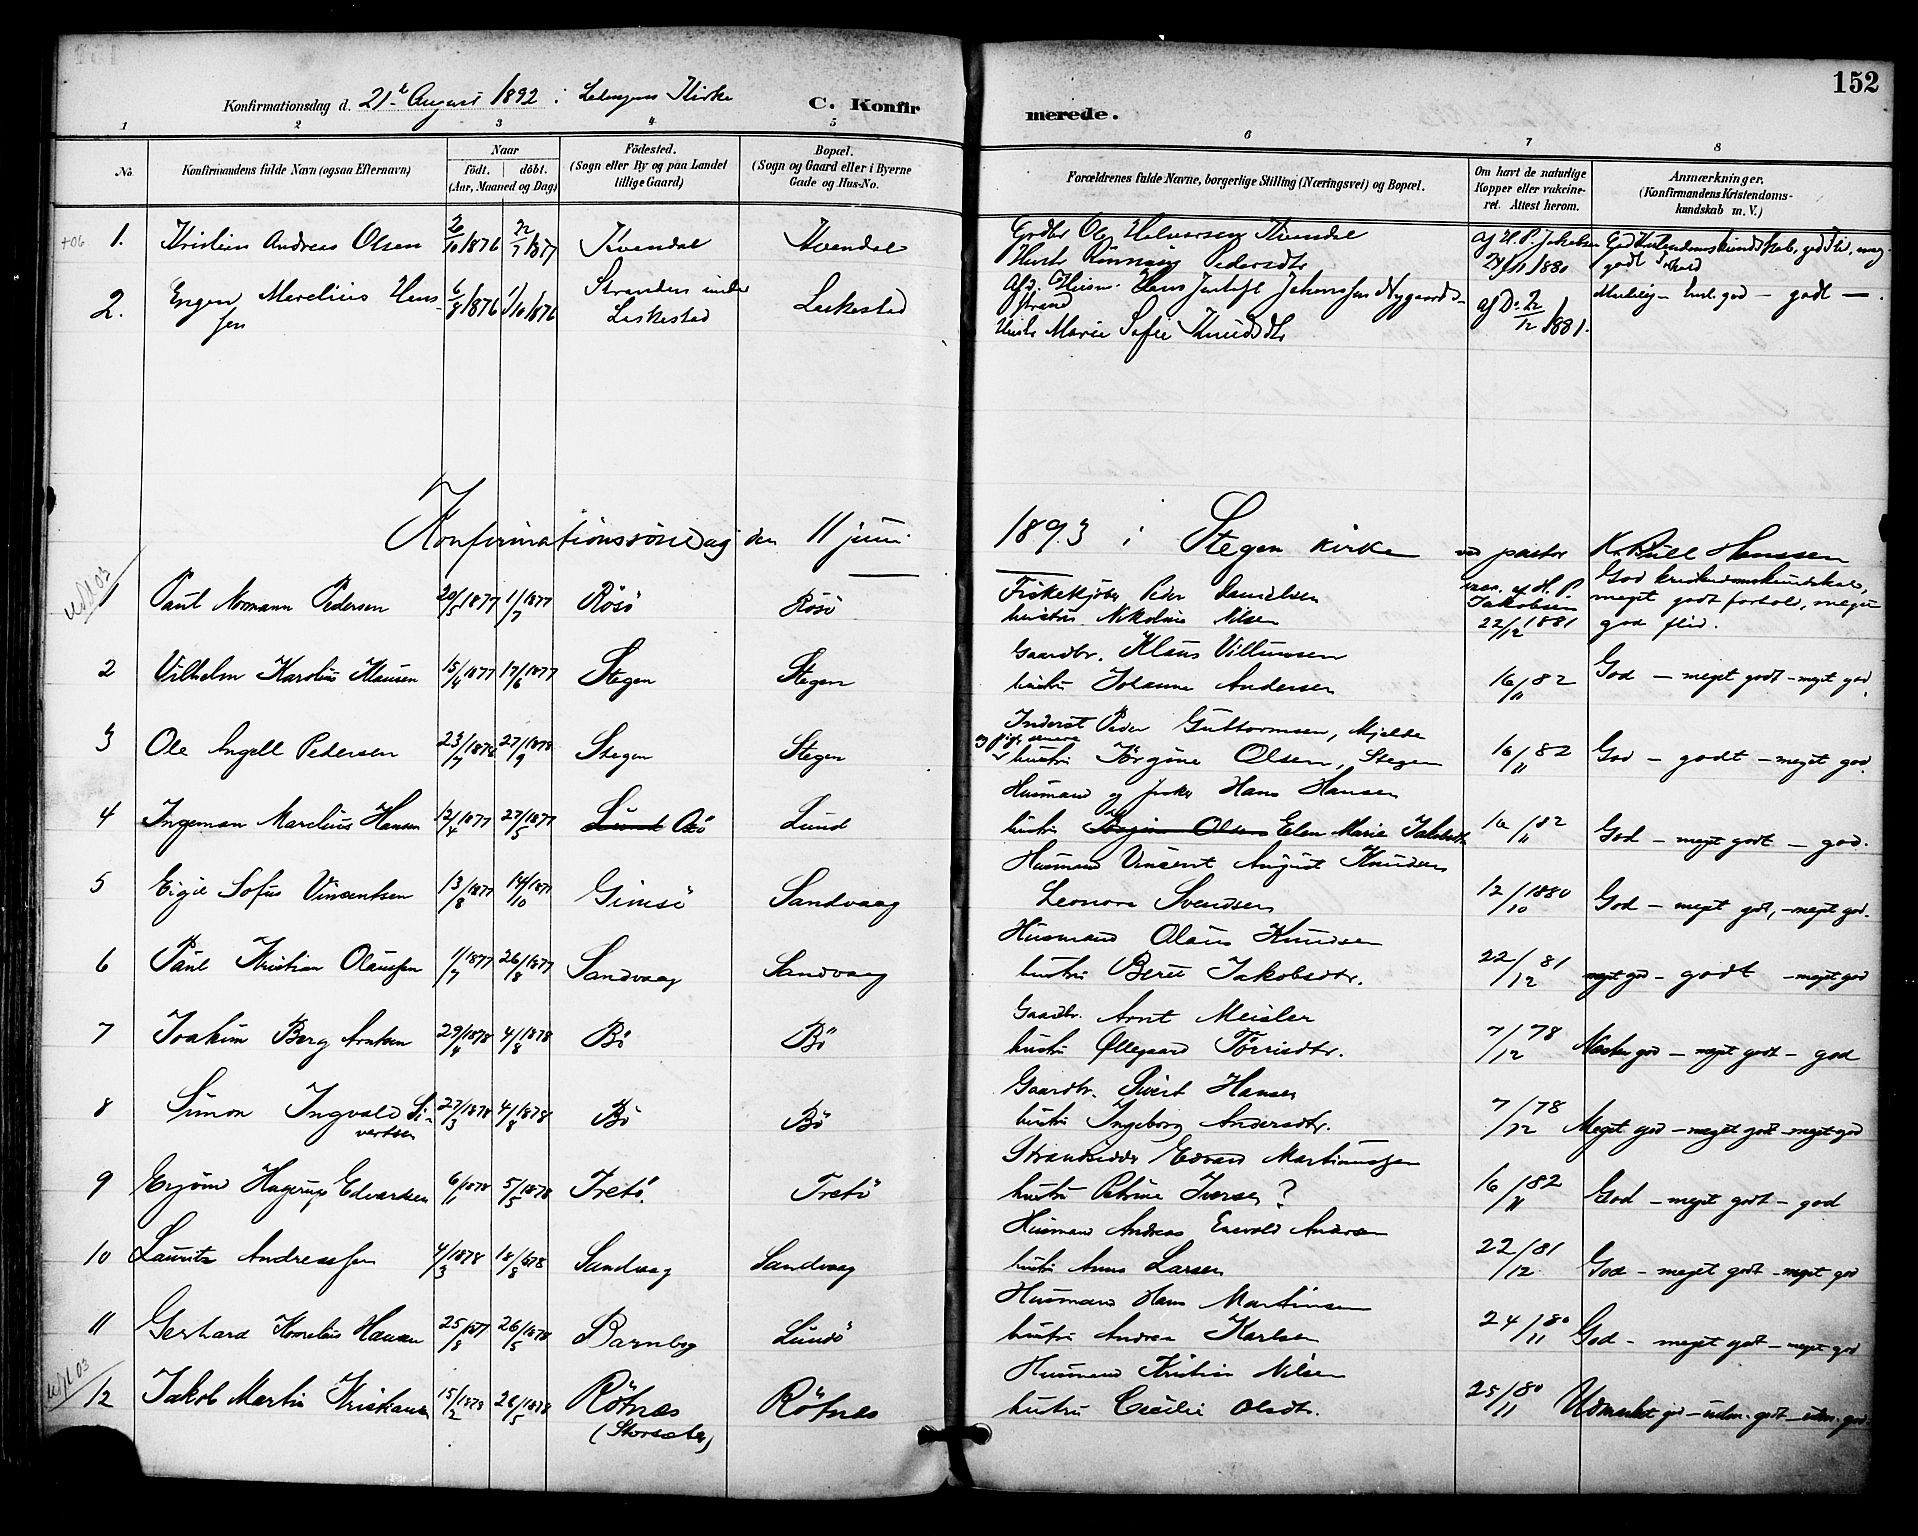 152
Konfirmationsdag d. 21de August 1892 i Kirke C. Konfirmerede.
1 2 3 4 5 6 7 8
No. Konfirmandens fulde Navn (ogsaa Efternavn) Naar födt. döbt. (Aar, Maaned og Dag) Födested. (Sogn eller By og paa Landet tillige Gaard) Bopæl. (Sogn og Gaard eller i Byerne Gade og Hus-No. Forældrenes fulde Navne, borgerlige Stilling (Næringsvei) og Bopæl. Om havt de naturlige Kopper eller vakcineret. Attest herom. Anmærkninger. (Konfirmandens Kristendomskundskab m. V.)
1. Kristian Andreas Olsen 2/10 1876 Kvendal Kvendal Grdbr Ole Halvorsen Kvendal
Hustr Pedersdtr af H. P. Jakobsen 1880
2. Marelius Hansen 6/9 1876 1/10 1876 Stranden under Leskestad Leskestad Hans Johansen Nygaardsstrand
Hustr Marie Sofie Knudsdtr 1881.
Konfirmationssöndag den 11 juni 1893 i Stegen Kirke ved pastor Hanssen
1 Paul Normann Pedersen 20/5 1877 1/7 1877 Rösö Rösö Fiskekjöber Peder Danielsen
hustru Nikoline Nilsen vac. af H. P. Jakobsen 22/12 1881 God kristendomskundskab, meget godt forhold, meget god flid.
2 Vilhelm Karolius Klausen 15/4 1877 17/6 1877 Stegen Stegen Gaardbr. Klaus Villumsen
hustru Johanna Andersen 16/11 82 God – meget godt – meget god.
3 Ole Angell Pedersen 23/7 1878 27/9 1878 Stegen Stegen Inderst Peder Guttormsen, Mjelde
hustru Jörgine Olsen, Stegen 16/11 82 God – godt – meget god.
4 Ingeman Marelius Hansen 12/4 1877 27/5 1877 Lund Lund Husmand og fisker Hans Hansen
hustru Elen Marie Jakobsdtr 16/11 82 God – meget godt – god.
5 Eigil Sofus Vinsentsen 13/8 1877 14/10 1877 Gimsö Sandvaag Husmand Vinsent August Knudsen
Leonora Svendsen 12/10 1880 God – meget godt, – meget god.
6 Paul Kristian Olaussen 1/7 1877 26/8 1877 Sandvaag Sandvaag Husmand Olaus Knudsen
hustru Beret Jakobsdtr. 22/12 81 meget god – godt – meget god
7 Joakim Berg Arntsen 29/4 1878 4/8 1878 Bö Bö Gaardbr. Arnt Meisler
hustru Øllegaard Torrisdtr. 7/12 78 Næsten god – meget godt – god
8 Simon Ingvald Sivertsen 27/3 1878 4/8 1878 Bö Bö Gaardbr. Sivert Hansen
hustru Ingeborg Andersdtr. 7/12 78 Meget god – meget godt – meget god
9 Hagerup Edvardsen 6/1 1878 5/5 1878 Tretö. Tretö Strandsidder Edvard Martinussen
hustru Petrine Iversen? 16/11 82 God – meget godt – god
10 Laurits Andreassen 4/3 1878 18/8 1878 Sandvaag Sandvaag Husmand Andreas Enevald Andersen
hustru Anna Larsen 22/12 81 God – meget godt – meget god
11 Gerhard Kornelius Hansen 25/8 1877 26/5 1878 Barnbog Lundö Husmand Hans Martinsen
hustru Andrea Karlsen 24/11 80 God – meget godt – meget god
12 Jakob Martin Kristiansen 15/2 1878 26/5 1878 Rötnes Rötnes Husmand Kristian Nilsen
(Storsæter) hustru Cecilie Olsdtr. 25/11 80 Udmærket god – udm. godt – udm. god.